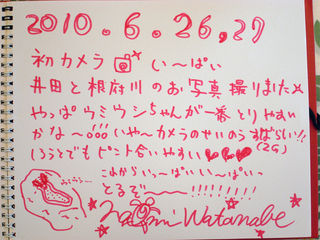 2010.6.26,27
初カメラ い〜ぱい
井田と根府川のお写真撮りました
やっぱウミウシちゃんが一番とりやすい
かな〜!!! いや〜カメラのせいのうすばらしい!!
(2G)
しろうとでもピント合いやすい♥♥♥
これからい〜ぱいい〜ぱい
とるぞ〜!!!!!!!!!
Naomi Watanabe